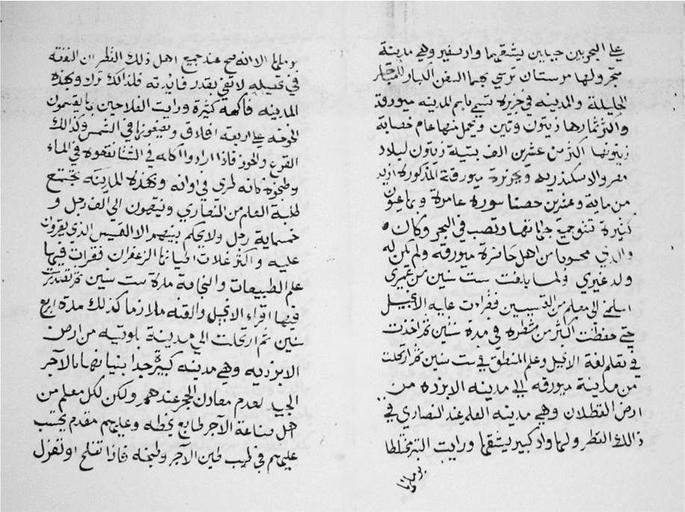 على البحر بين جبلين يشقها واد صغير وهي مدينة
متجر ولها مرستان ترسي بهما السفن الكبار للمتجر
الجليلة والمدينة في جزيرة تسمى باسم المدينة ميورقة
واكثر ثمارها زيتون وتين وتحمل منها عام خصابة
زيتونها اكثر من عشرين الف بتية زيتون لبلاد
مصر والاسكندرية وبجزيرة ميورقة المذكورة ازيد
من ماية وعشرين حصنا مسورة عامرة وبها عيون
كثيرة تنوجميع جهاتها وتصب في البحر وكان
والدي محسوبا من اهل حاضرة ميورقة ولم يكن له
ولد غيري ولما بلغت ست سنين من عمري
اسلمني الى معلم من القسيسين فقرات عليه الانجيل
حتى حفظت اكثر من شطره في مدة سنتين ثم اخذت
في تعلم لغة الانجيل وعلم المنطق في ست سنين ثم ارتحلت
من مدينة ميورقة الى مدينة الابزده من
ارض القطلان وهي مدينة العلم عند النصارى في
ذالك القطر ولها واد كبير يشقها ورايت التبر مختلطا
برملها
برملها الا انه صح عند جميع اهل ذلك القطر ان النفقة
في تحصيله لا تفي بقدر فائدته فلذالك ترك وبهذه
المدينة فاكهة كثيرة ورايت الفلاحين بها يقسمون
الخوخة على اربعة افلاق ويقيمونها في الشمس وكذالك
القرع والجوز فاذا ارادوا اكله في الشتا نقعوه في الماء
وطبخوه كانه طري في اوانه وبهذه المدينة يجتمع
طلبة العلم من النصارى وينتهون الى الف رجل و
خمسماية رجل ولا يحكم بينهم الا القسيس الذي يقرؤن
عليه واكثر غلات احيازها الزعفران فقرات فيها
علم الطبيعات والنجامة مدة ست سنين ثم تصدرت
فيها اقراء الانجيل ولغته ملازما كذلك مدة اربع
سنين ثم ارتحلت الى مدينة بلونية من ارض
الابزديه وهي مدينة كبيرة جدا بنيانها بالآجر
الجيد لعدم معادن الحجر عندهم ولكن لكل معلم من
اهل صناعة الآجر طابع يخصه وعليهم مقدم يحتسب
عليهم في طيب طين الآجر وطبخه فاذا تفلح او تفزل